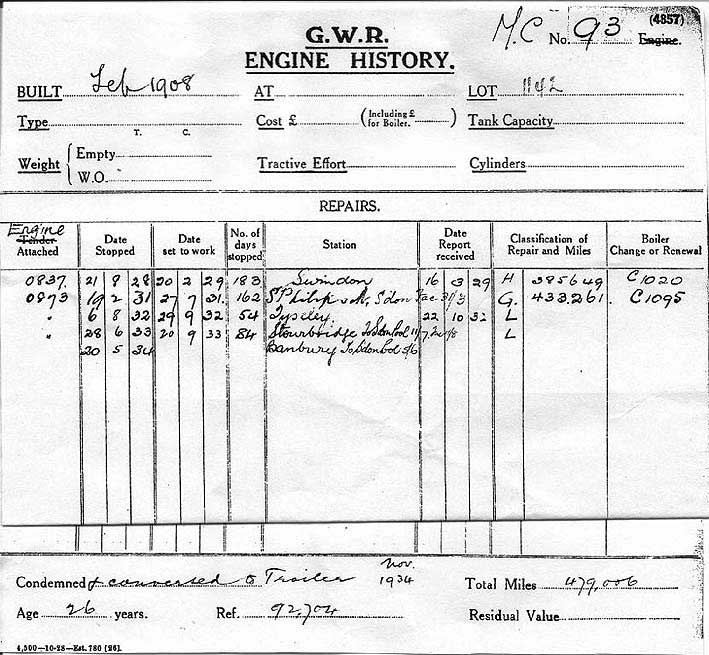 (4857)
M.C No. 93 Engine.
G.W.R.
ENGINE HISTORY.
BUILT Feb 1908 AT LOT 1142
Type Cost £ (Including £ for Boiler. ) Tank Capacity
T. C.
Weight { Empty Tractive Effort Cylinders
W.O.
REPAIRS.
Engine Tender Attached Date Stopped Date set to work No. of days stopped Station Date Report received Classification of Repair and Miles Boiler Change or Renewal
0837. 21 8 28 20 2 29 183 Swindon 16 3 29 H 385649 C1020
0873 19 2 31 27 7 31. 162 S'don 31/3 G. 433,261. C1095
" 6 8 32 29 9 32 54 Tyseley. 22 10 32 L
" 28 6 33 20 9 33 84 Stourbridge To Sdon Pool L
20 5 34 Banbury To Sdon Pool 5/6
Condemned & converted to Trailer Nov. 1934 Total Miles 479,006
Age 26 years. Ref. 92,704 Residual Value
4,500—10-28—Est. 780 (26).